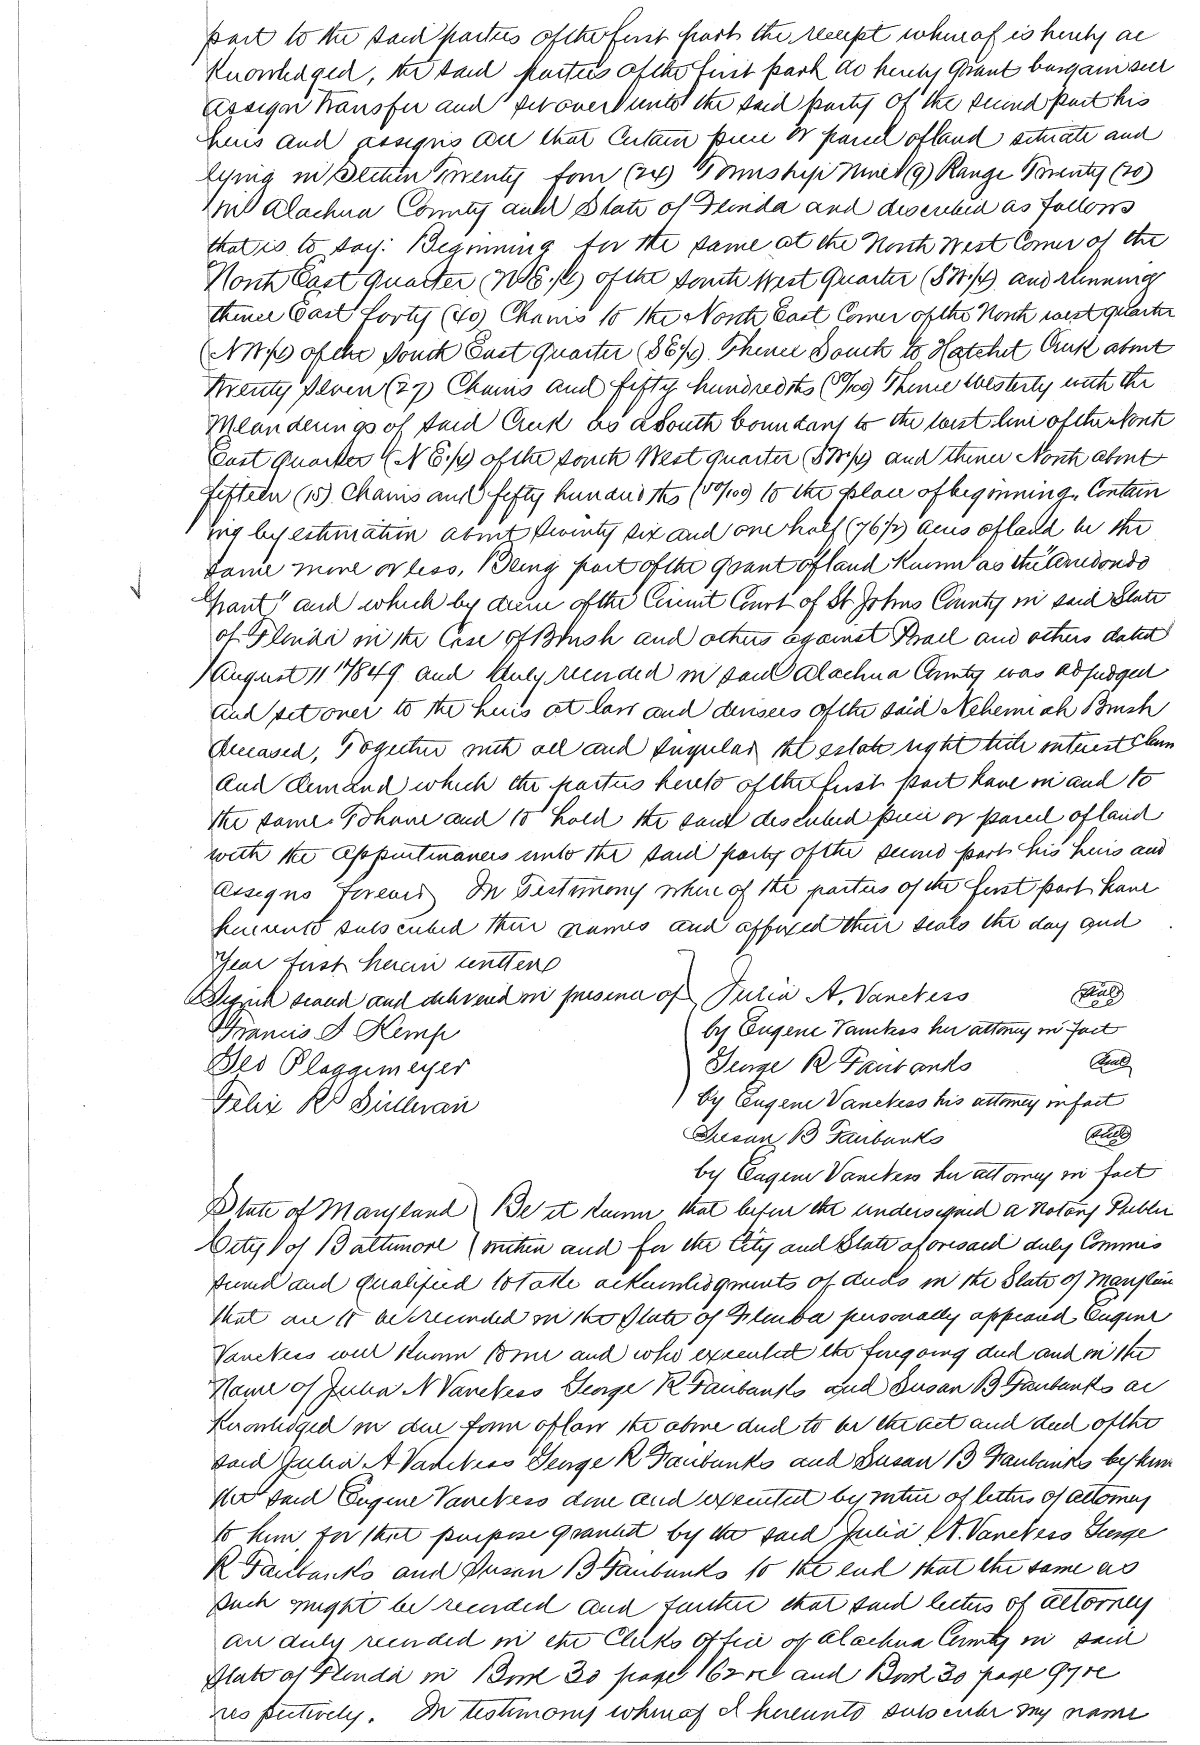 part to the said parties of the first part the receipt whereof is hereby ac
knowledged, the said parties of the first part do hereby Grant bargain sell
assign transfer and set over unto the said party of the second part his
heirs and assigns all that certain piece or parcel of land situate and
lying in Section Twenty four (24) Township Nine (9) Range Twenty (20)
in Alachua County and State of Florida and described as follows
that is to say: Beginning for the same at the North West Corner of the
North East Quarter (N.E.¼) of the South West Quarter (SW¼) and running
thence East forty (40) Chains to the North East Corner of the North west quarter
(NW¼) of the South East Quarter (SE¼) Thence South to Hatchet Creek about
Twenty Seven (27) Chains and fifty hundredths (50/100) Thence Westerly with the
Meanderings of said Creek as a South boundary to the west line of the North
East Quarter (NE¼) of the South West quarter (SW¼) and thence North about
fifteen (15) Chains and fifty hundredths (50/100) to the place of beginning, Contain
ing by estimation about Seventy six and one half (76½) acres of land be the
same more or less, Being part of the Grant of land Known as the "Arredondo
Grant" and which by decree of the Circuit Court of St Johns County in said State
of Florida in the Case of Brush and others against and others dated
August 11th 1849 and duly recorded in said Alachua County was adjudged
and set over to the heirs at law and devisees of the said Nehemiah Brush
deceased, Together with all and singular the estate right title interest claim
and demand which the parties hereto of the first part have in and to
the same. To have and to hold the said described piece or parcel of land
with the appurtenances unto the said party of the second part his heirs and
assigns forever In Testimony where of the parties of the first part have
hereunto subscribed their names and affixed their seals the day and
Year first herein written
Signed sealed and delivered in presence of Julia A. VanNess (seal)
Francis S Kemp by Eugene VanNess her attorney in fact
Geo Plaggemeyer George R Fairbanks (seal)
Felix R Sullivan by Eugene VanNess his attorney in fact
Susan B Fairbanks (seal)
by Eugene VanNess her attorney in fact
State of Maryland Be it Known that before the undersigned a Notary Public
City of Baltimore within and for the City and State aforesaid duly Commis
sioned and qualified to take acknowledgments of deeds in the State of Maryland
that are to be recorded in the State of Florida personally appeared Eugene
VanNess well Known to me and who executed the foregoing deed and in the
Name of Julia A VanNess George R Fairbanks and Susan B Fairbanks ac
knowledged in due form of law the above deed to be the act and deed of the
said Julia A VanNess George R Fairbanks and Susan B Fairbanks by him
the said Eugene VanNess done and executed by virtue of letters of attorney
to him for that purpose granted by the said Julia A. VanNess George
R Fairbanks and Susan B Fairbanks to the end that the same as
such might be recorded and further that said letters of attorney
are duly recorded in the Clerks Office of Alachua County in said
State of Florida in Book 30 page 162 and Book 30 page 97
respectively. In testimony whereof I hereunto subscribe my name